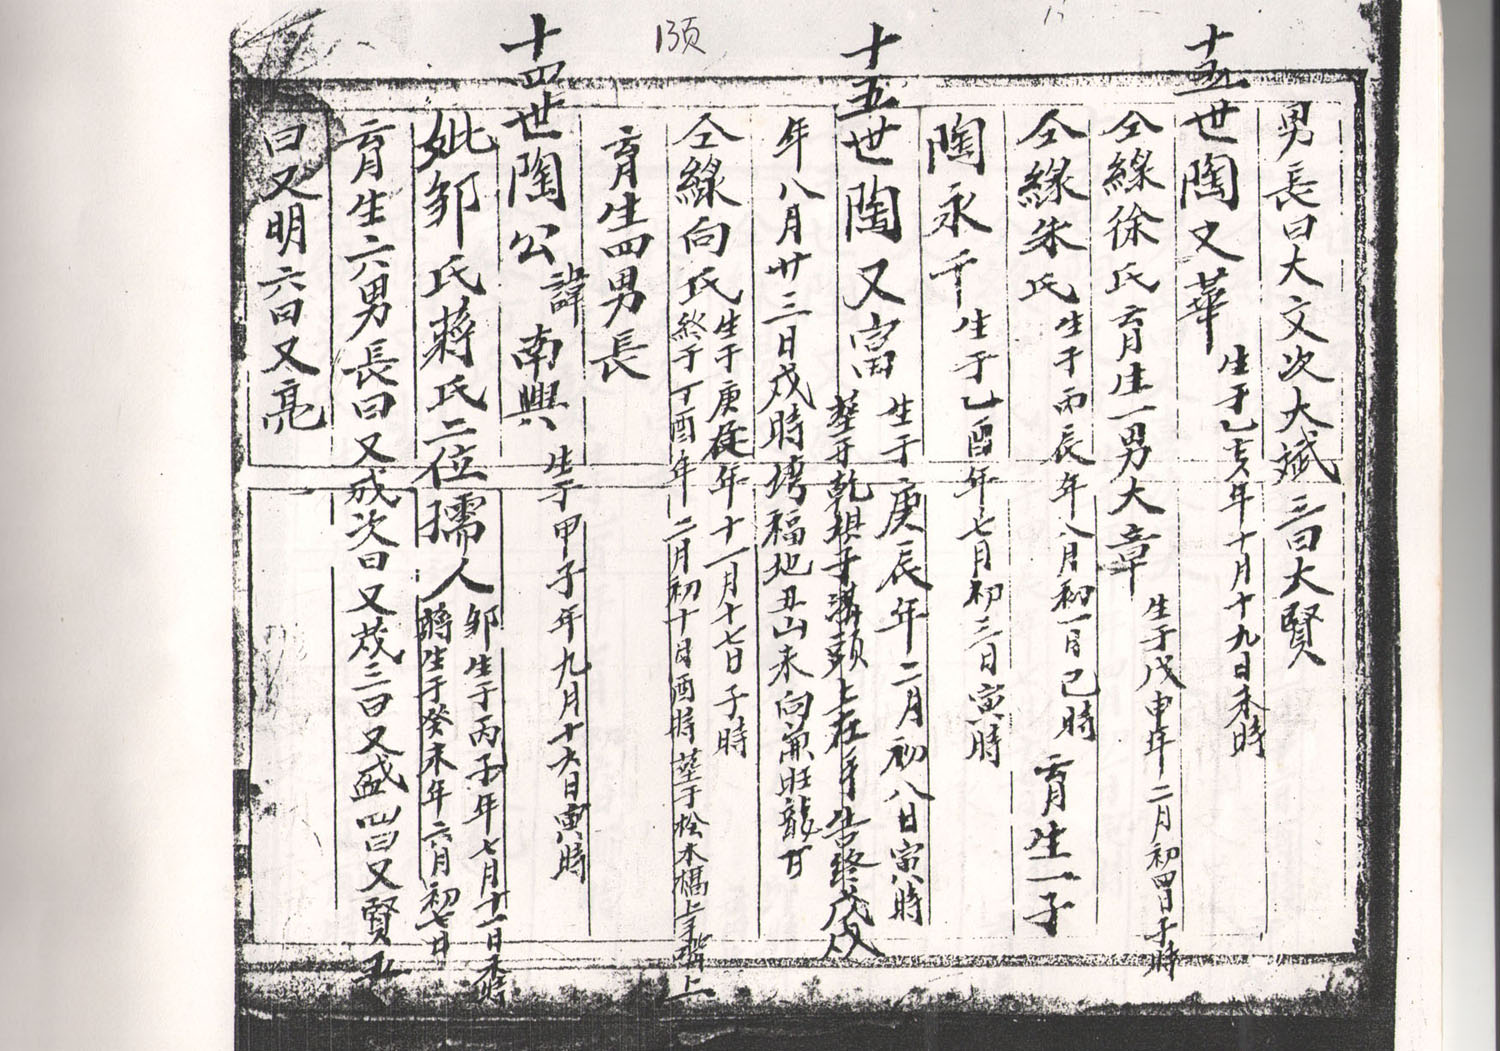 13页
男長曰大文次大斌三曰大賢
十五世陶又華 生于乙亥年十月十九日未時
仝緣徐氏育生一男大章 生于戊申年二月初四日子時
仝緣朱氏 生于丙辰年八月初一日己時 育生一子
陶永千 生于乙酉年七月初三日寅時
十五世陶又富 生于庚辰年二月初八日寅時
塟于乾棋子溝頭上在年告終戊戌
年八月廿三日戌時塆福地丑山未向兼旺龍
仝緣向氏 生于庚年十一月十七日子時
終于丁酉年二月初十日酉時塟于松木橋上
育生四男長
十四世陶公諱南興 生于甲子年九月十六日寅時
妣邹氏蔣氏二位孺人 邹生于丙子年七月十一日未時
蔣生于癸未年六月初七日
育生六男長曰又成次曰又茂三曰又盛四曰又賢五
曰又明六曰又亮